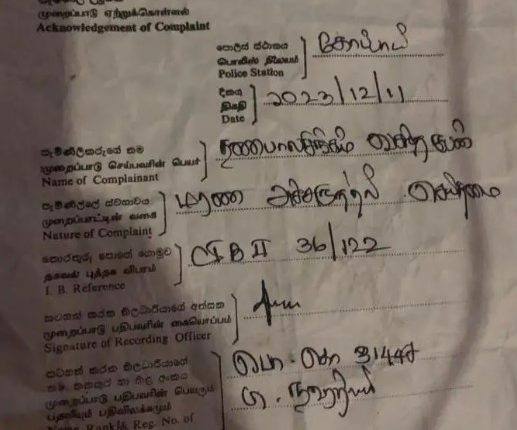 முறைப்பாடு ஏற்றுக்கொள்ளல்
Acknowledgement of Complaint
පොලිස් ස්ථානය
பொலிஸ் நிலையம்
Police Station
கோப்பாய்
දිනය
திகதி
Date
2023/12/11
පැමිණිලිකරුගේ නම
முறைப்பாடு செய்பவரின் பெயர்
Name of Complainant
පැමිණිල්ලේ ස්වභාවය
முறைப்பாட்டின் வகை
Nature of Complaint
மரண அச்சுறுத்தல் செய்தமை
තොරතුරු පොතේ යොමුව
தகவல் புத்தக விபரம்
I. B. Reference
CIB II 36/122
සටහන් කරන නිලධාරියාගේ අත්සන
முறைப்பாடு பதிபவரின் கையொப்பம்
Signature of Recording Officer
සටහන් කරන නිලධාරියාගේ
නම, තනතුර හා නිල අංකය
முறைப்பாடு பதிபவரின் பெயரும்
பதவியும் பதிவிலக்கமும்
Name, Rank & Reg. No. of